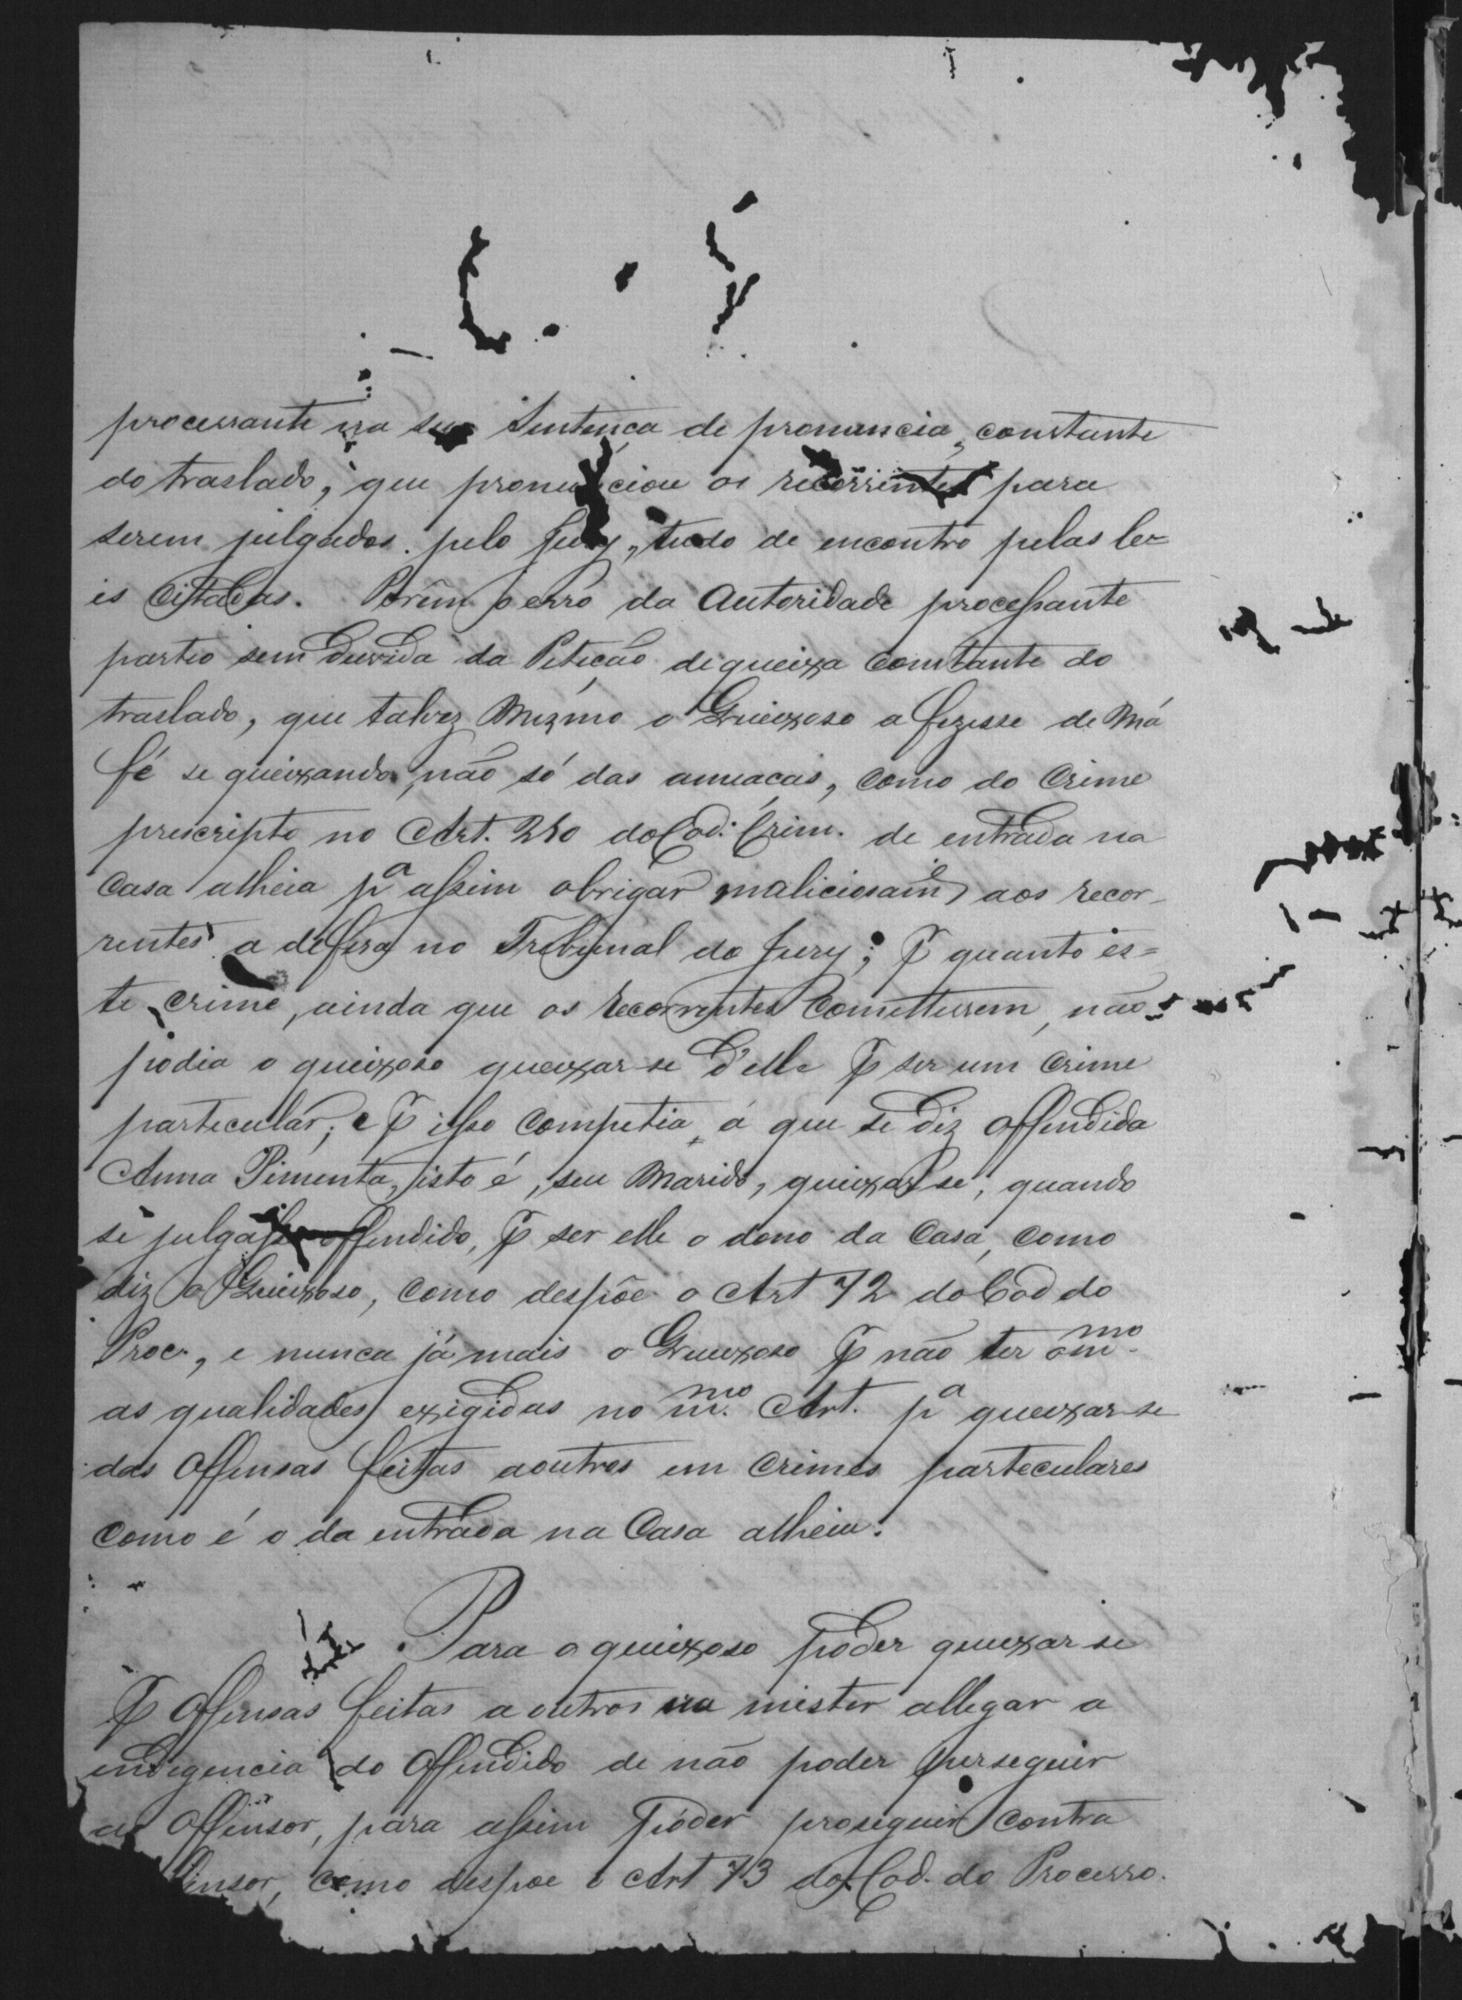 processante na sua Sentença de pronuncia, constante
do traslado, que pronunciou os recorrentes para
serem julgados pelo Jury, tudo de encontro pelas le=
is citadas. Porém o erro da Autoridade processante
partio sem duvida da Petição de queixa constante do
traslado, que talvez mesmo o Queixoso a fizesse de má
fé se queixando, não só das ameaças, como do Crime
prescripto no Art. 210 do Cod. Crim. de entrada na
Casa alheia pª assim obrigar maliciosamᵉ aos recor-
rentes a defesa no Tribunal do Jury; P quanto es=
te crime, ainda que os recorrentes comettessem, não
podia o queixoso queixar-se d'elle P ser um crime
particular; e P isso competia á que se diz offendida
Anna Pimenta, isto é, seu Marido, queixar-se, quando
se julgasse offendido, P ser elle o dono da Casa, como
diz o Queixoso, como despõe o Art 72 do Cod do
Proc., e nunca já mais o Queixoso P não ter o mmo.
as qualidades exigidas no m.mo Art. pª queixar-se
das offensas feitas a outros em crimes particulares
como é o da entrada na Casa alheia.
Para o queixoso poder queixar se
P offensas feitas a outros era mister allegar a
indigencia do offendido de não poder perseguir
ao offensor, para assim poder proseguir contra
ffensor, como despõe o Art 73 do Cod. do Processo.